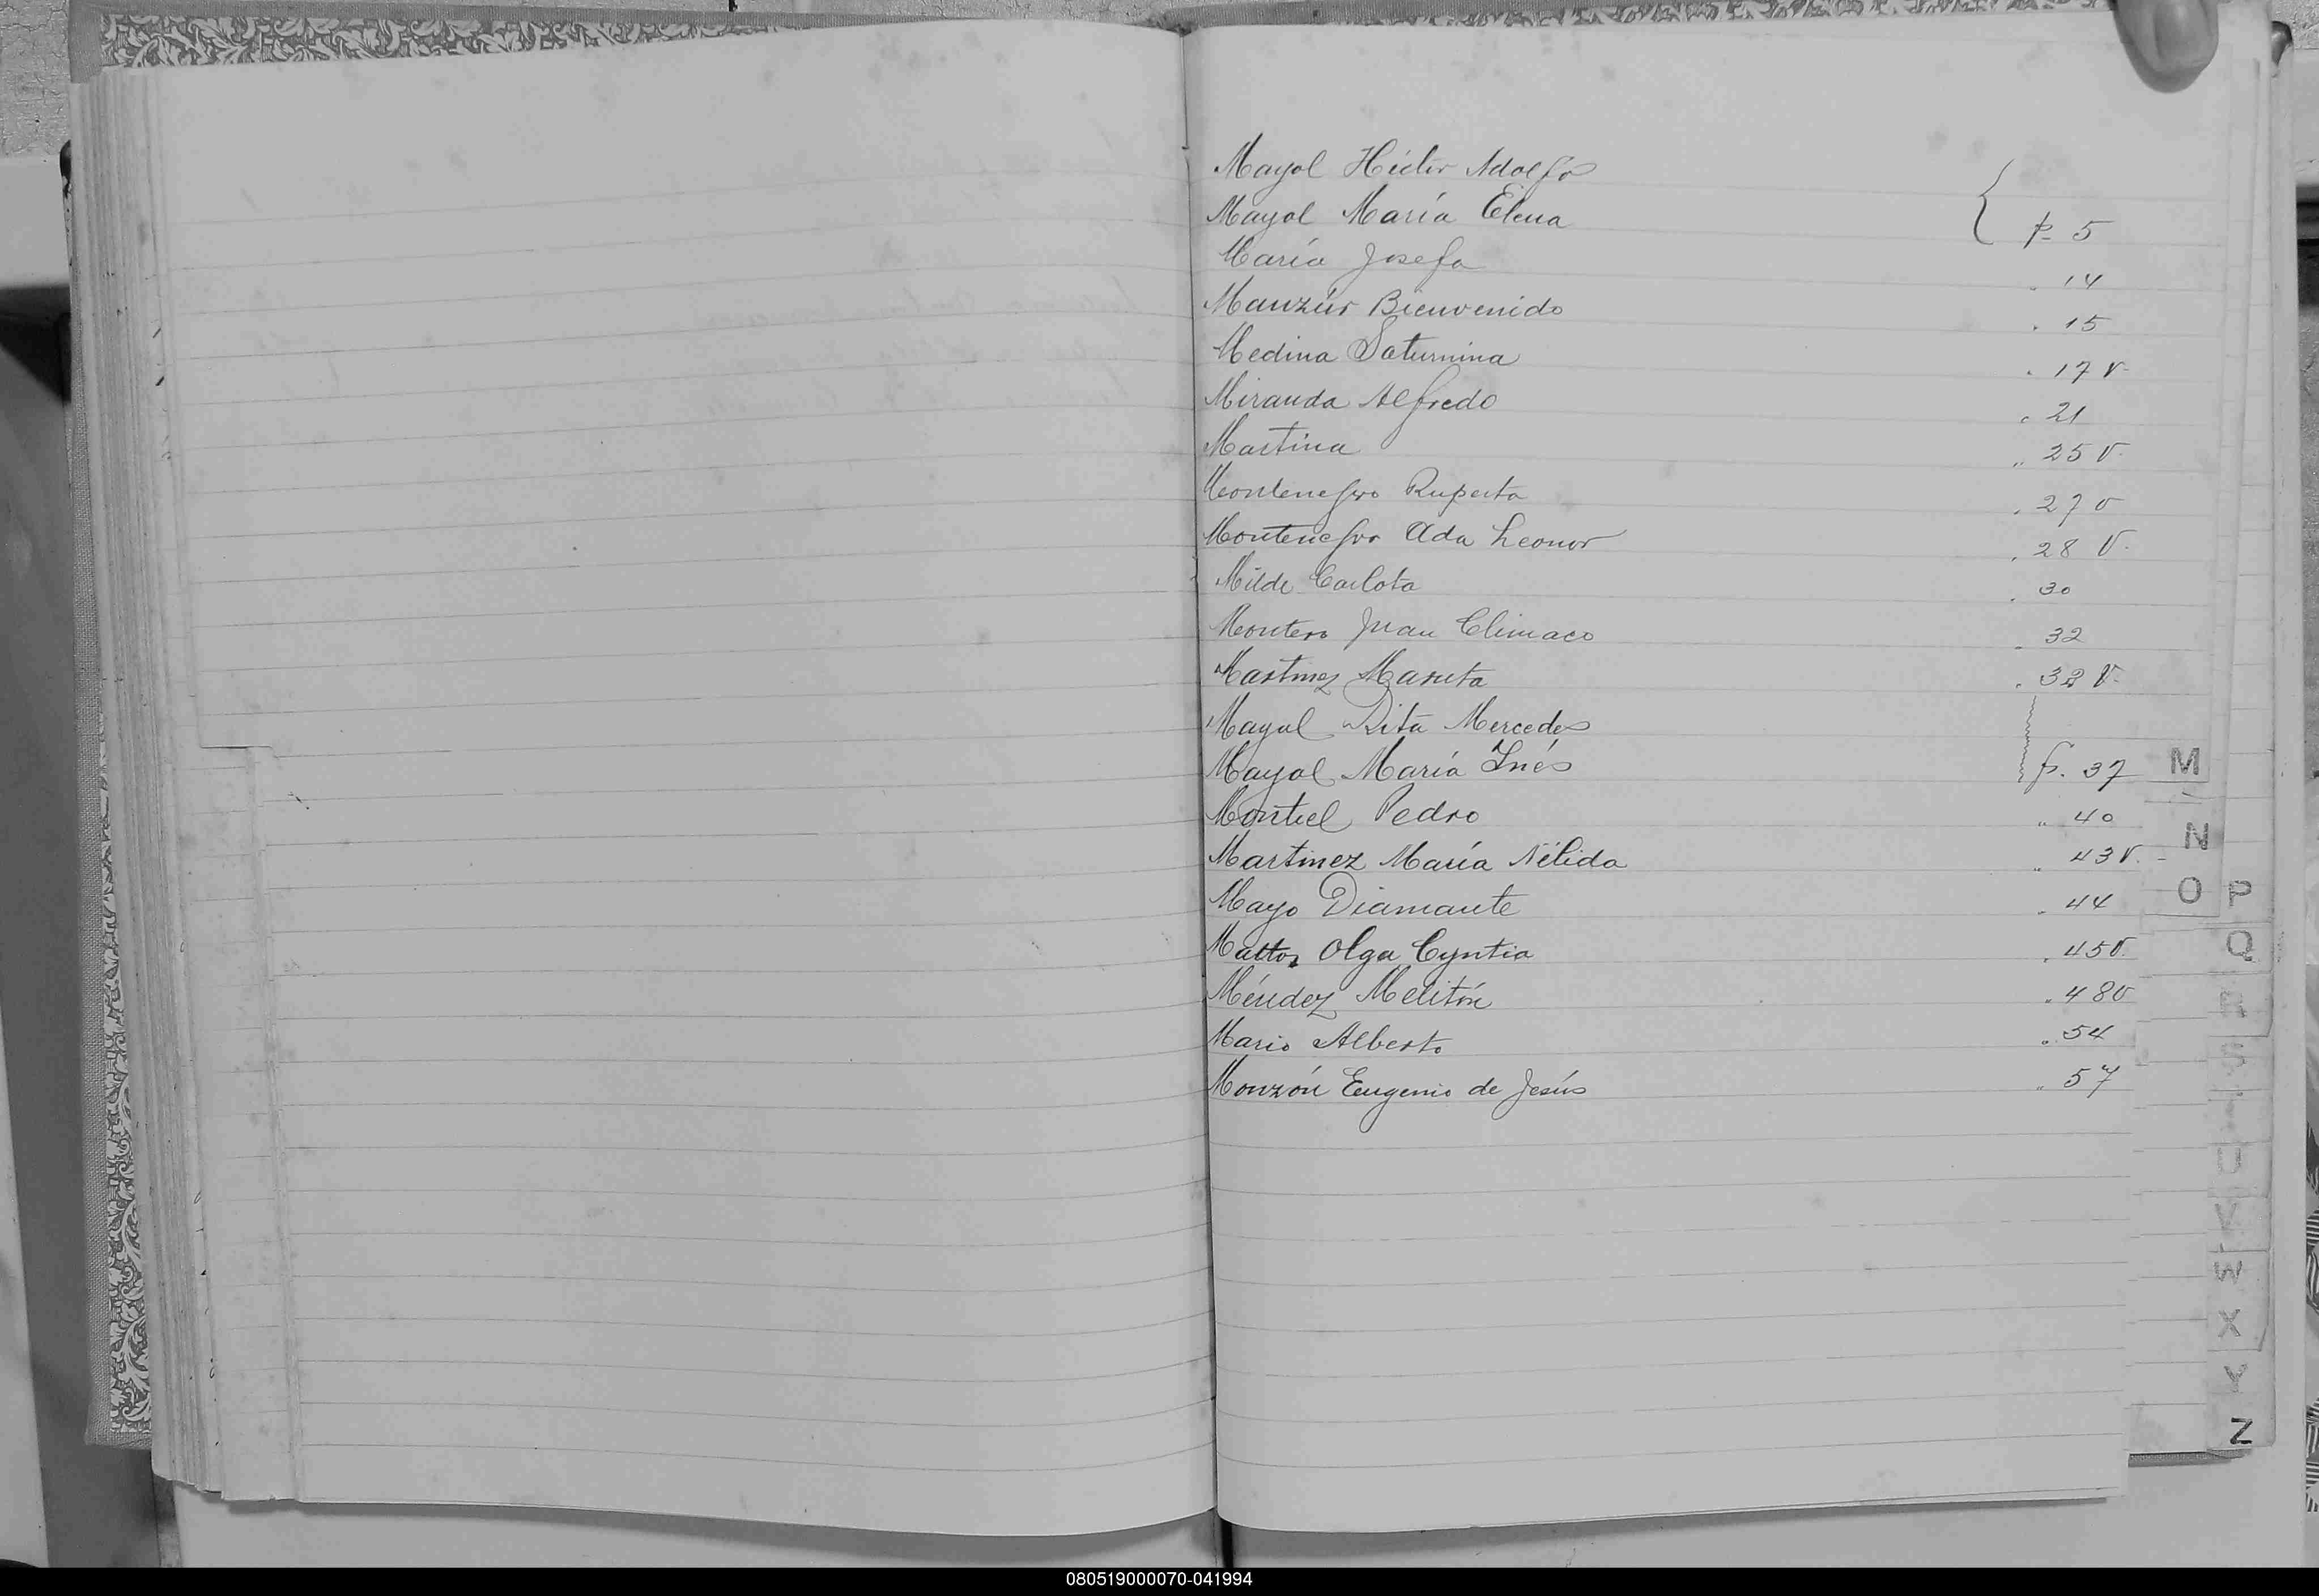 Mayol Héctor Adolfo
Mayol María Elena { p. 5
María Josefa " 14
Manzúr Bienvenido " 15
Medina Saturnina " 17 v.
Miranda Alfredo " 21
Martina " 25 v.
Montenegro Ruperta " 27 v
Montenegro Ada Leonor " 28 v.
Milde Carlota " 30
Montero Juan Climaco " 32
Martinez " 32 v.
Mayol Rita Mercedes
Mayol María Inés p. 37
Montiel Pedro " 40
Martinez María Nélida " 43 v.
Mayo Diamante " 44
Mattos Olga Cyntia " 45 v.
Méndez Melitón " 48 v
Mario Alberto " 54
Monzón Eugenio de Jesús " 57
M
N
O P
Q
R
S
T
U
V
W
X
Y
Z
080519000070-041994